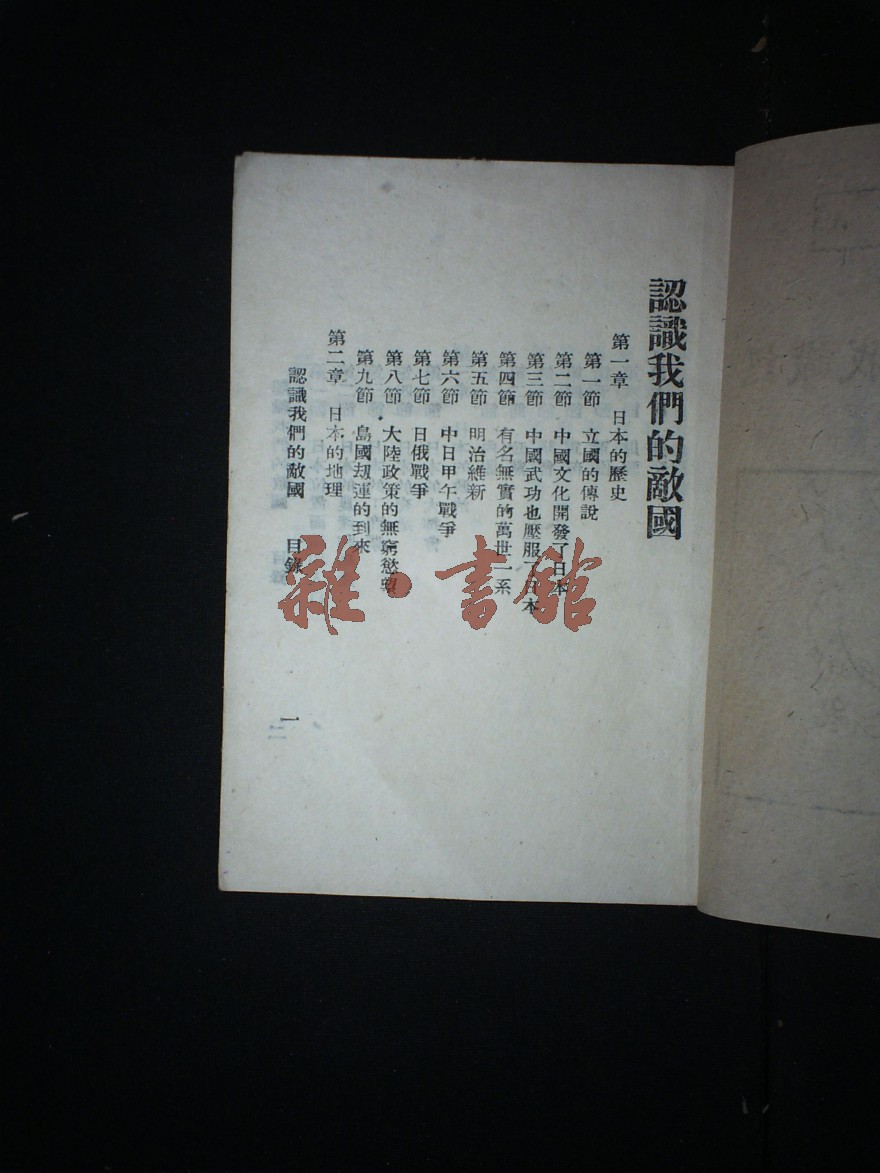 認識我們的敵國
第一章 日本的歷史
第一節 立國的傳說
第二節 中國文化開發了日本
第三節 中國武功也壓服了日本
第四節 有名無實的萬世一系
第五節 明治維新
第六節 中日甲午戰爭
第七節 日俄戰爭
第八節 大陸政策的無窮慾望
第九節 島國刼運的到來
第二章 日本的地理
認識我們的敵國 目錄
一
雜·書館